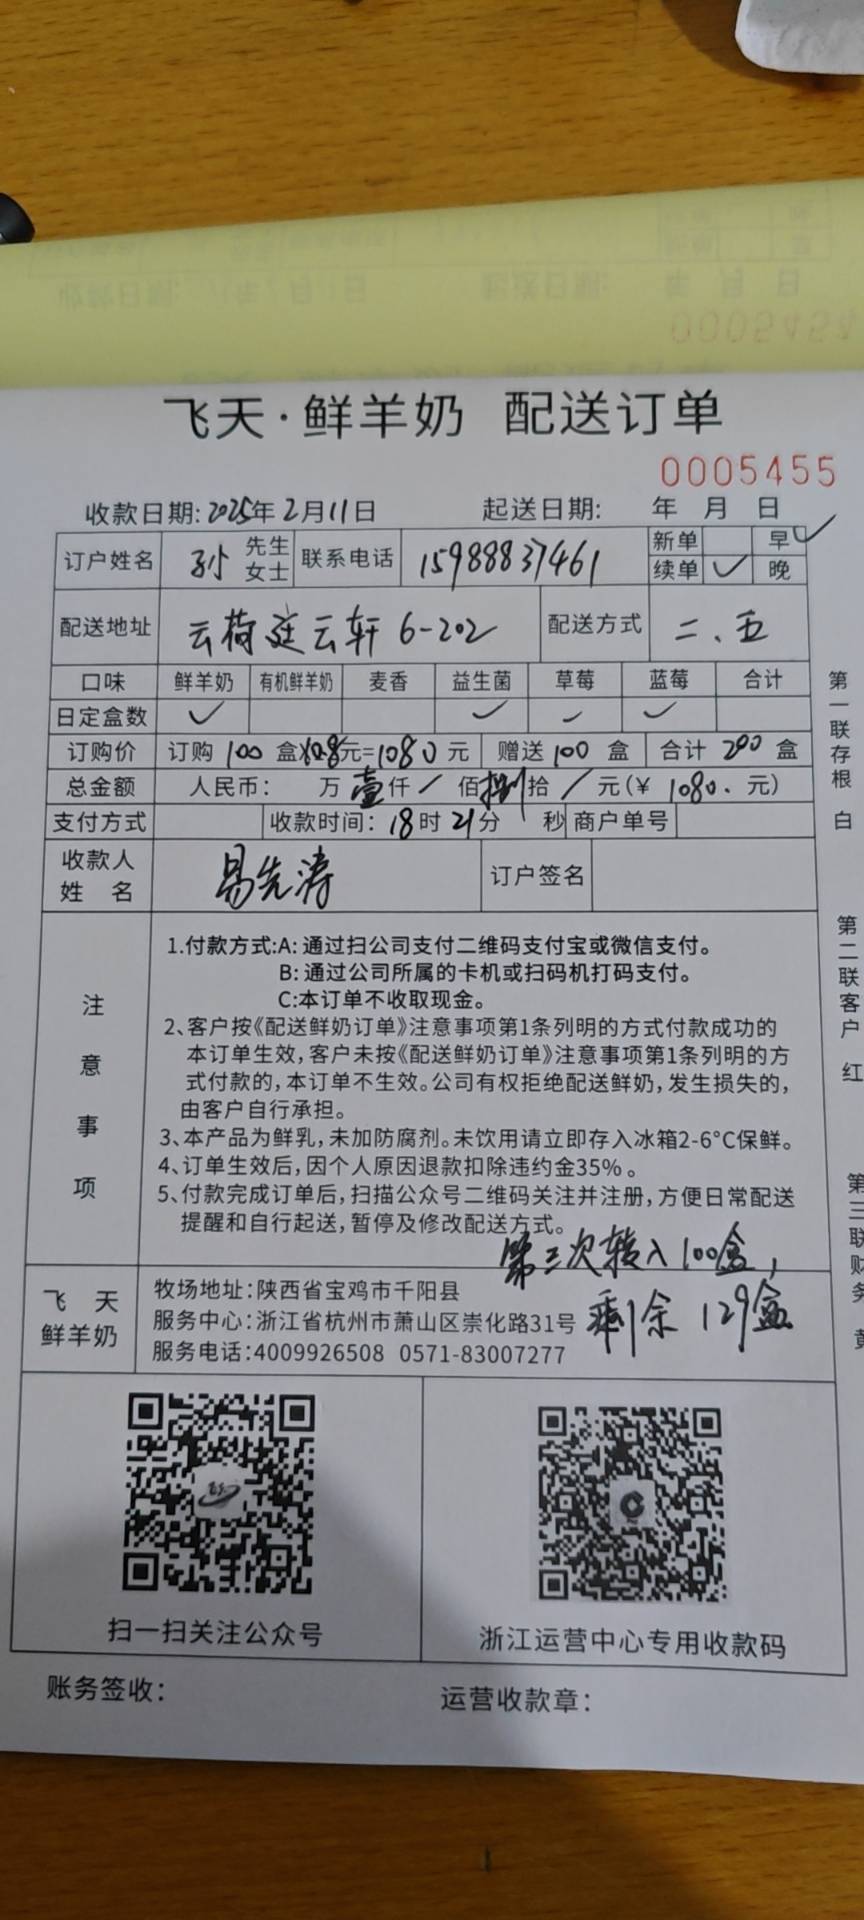 0005454
飞天·鲜羊奶 配送订单
0005455
收款日期: 2025年2月11日 起送日期: 年 月 日
订户姓名 孙 先生 女士 联系电话 15988837461 新单 早 ✓
续单 ✓ 晚
配送地址 云荷廷云轩 6-202 配送方式 二、五
口味 鲜羊奶 有机鲜羊奶 麦香 益生菌 草莓 蓝莓 合计
日定盒数 ✓ ✓ ✓ ✓
订购价 订购 100 盒×10.8元=1080元 赠送 100 盒 合计 200 盒
总金额 人民币: 万 壹仟 / 佰 捌拾 / 元(¥ 1080. 元)
支付方式 收款时间: 18时21分 秒 商户单号
收款人姓名 易先涛 订户签名
注意事项
1.付款方式:A: 通过扫公司支付二维码支付宝或微信支付。
B: 通过公司所属的卡机或扫码机打码支付。
C:本订单不收取现金。
2、客户按《配送鲜奶订单》注意事项第1条列明的方式付款成功的
本订单生效,客户未按《配送鲜奶订单》注意事项第1条列明的方
式付款的,本订单不生效。公司有权拒绝配送鲜奶,发生损失的,
由客户自行承担。
3、本产品为鲜乳,未加防腐剂。未饮用请立即存入冰箱2-6°C保鲜。
4、订单生效后,因个人原因退款扣除违约金35%。
5、付款完成订单后,扫描公众号二维码关注并注册,方便日常配送
提醒和自行起送,暂停及修改配送方式。
第三次转入100盒,
剩余 129盒
飞天
鲜羊奶
牧场地址:陕西省宝鸡市千阳县
服务中心:浙江省杭州市萧山区崇化路31号
服务电话:4009926508 0571-83007277
扫一扫关注公众号
浙江运营中心专用收款码
账务签收:
运营收款章:
第一联存根 白
第二联客户 红
第三联财务 黄